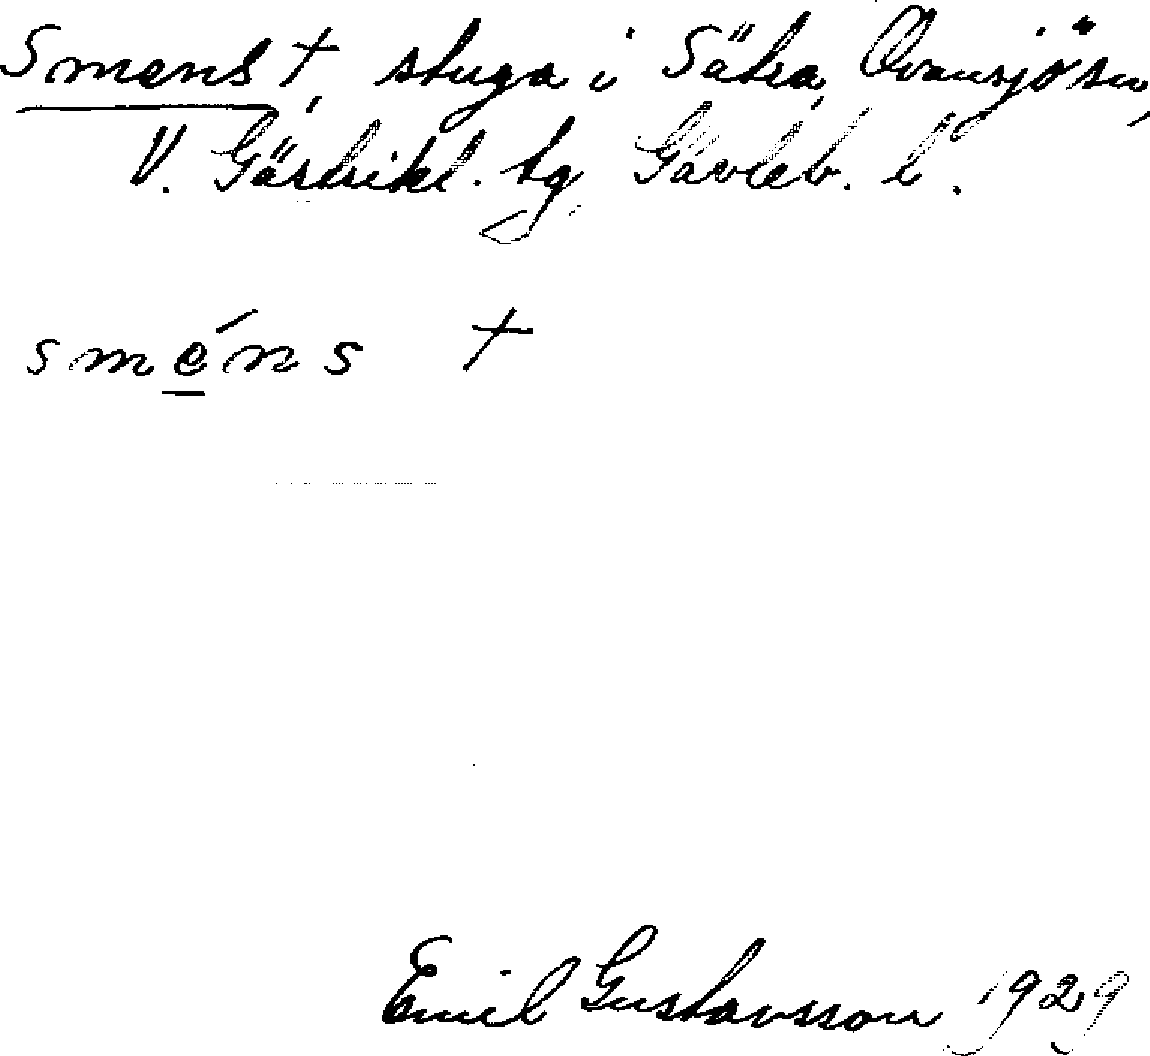 Smens †, stuga i Sätra, Ovansjö sn,
V. Gästrikl. tg Gävleb. l.
sméns †
Emil Gustavsson 1929